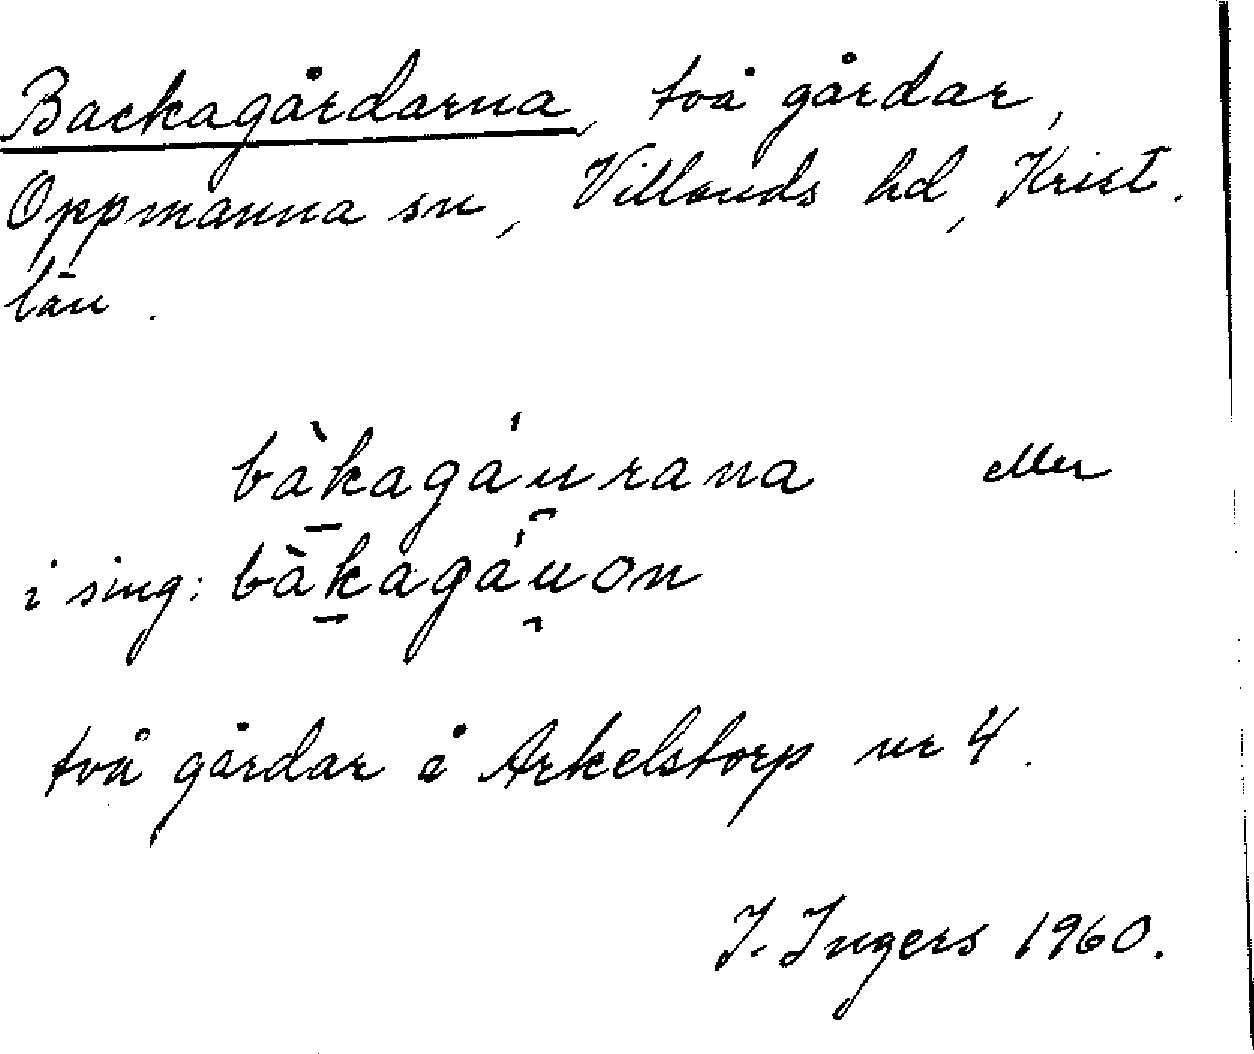 Backagårdarna, två gårdar,
Oppmanna sn, Villands hd, Krist.
län.
bàkagáu̯rana eller
i sing: bàkagáu̯on
två gårdar å Arkelstorp nr 4.
I. Ingers 1960.